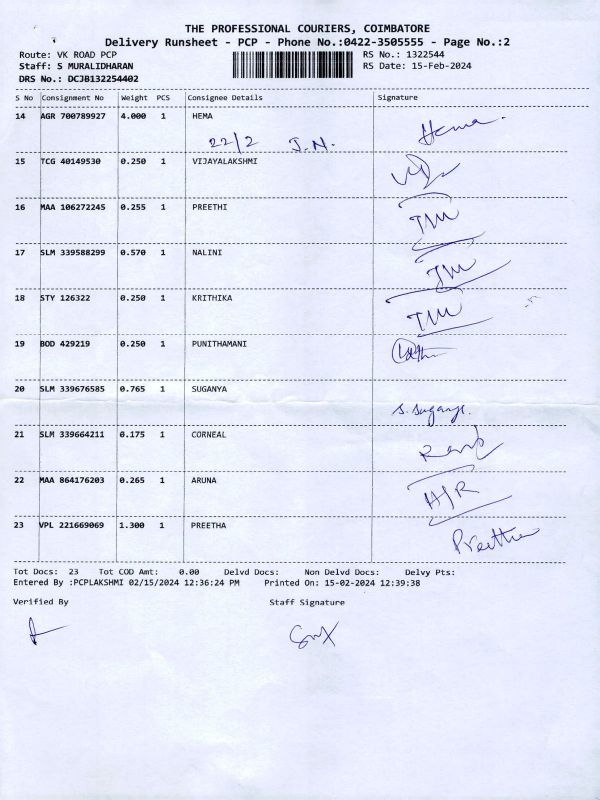 THE PROFESSIONAL COURIERS, COIMBATORE
Delivery Runsheet - PCP - Phone No.:0422-3505555 - Page No.:2
Route: VK ROAD PCP RS No.: 1322544
Staff: S MURALIDHARAN RS Date: 15-Feb-2024
DRS No.: DCJB132254402
S No Consignment No Weight PCS Consignee Details Signature
14 AGR 700789927 4.000 1 HEMA Hema.
22/2 J.N.
15 TCG 40149530 0.250 1 VIJAYALAKSHMI
16 MAA 106272245 0.255 1 PREETHI
17 SLM 339588299 0.570 1 NALINI
18 STY 126322 0.250 1 KRITHIKA
19 BOD 429219 0.250 1 PUNITHAMANI
20 SLM 339676585 0.765 1 SUGANYA S. Suganya.
21 SLM 339664211 0.175 1 CORNEAL
22 MAA 864176203 0.265 1 ARUNA
23 VPL 221669069 1.300 1 PREETHA Preetha
Tot Docs: 23 Tot COD Amt: 0.00 Delvd Docs: Non Delvd Docs: Delvy Pts:
Entered By :PCPLAKSHMI 02/15/2024 12:36:24 PM Printed On: 15-02-2024 12:39:38
Verified By Staff Signature